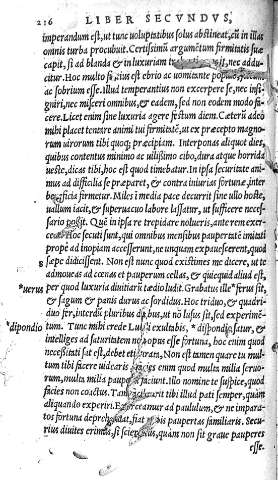 216 LIBER SECVNDVS,
imperandum est, ut tunc uoluptatibus solus abstineat, cũ in illas
omnis turba procubuit. Certissimũ argumẽtum firmitatis suæ
capit, si ad blanda & in luxuriam nec it, nec adduc-
citur. Hoc multo fi ius est ebrio ac uomitante populo,
ac sobrium esse. Illud temperantius non excerpere se, nec insi-
gniri, nec misceri omnibus, & eadem, sed non eodem modo fa-
cere. Licet enim sine luxuria agere festum diem. Cæterũ adeò
mihi placet tentare animi tui firmitatẽ, ut ex præcepto magno-
rum uirorum tibi quoq; præcipiam. Interponas aliquot dies,
quibus contentus minimo ac uilißimo cibo, dura atque horrida
ueste, dicas tibi, hoc est quod timebatur. In ipsa securitate ani-
mus ad difficilia se præparet, & contra iniurias fortunæ inter
beneficia firmetur. Miles in media pace decurrit sine ullo hoste,
uallum iacit, & superuacuo labore lassatur, ut sufficere neces-
sario poßit. Quem in ipsa re trepidare nolueris, ante rem exer-
ceas. Hoc secuti sunt, qui omnibus mensibus paupertatẽ imitati
propè ad inopiam accesserunt, ne unquam expauescerent, quod
sæpe didicissent. Non est nunc quod existimes me dicere, ut te
admoueas ad cœnas et pauperum cellas, & quicquid aliud est,
per quod luxuria diuitiarũ tædio ludit. Grabatus ille * ferus sit,
*uerus
& sagum & panis durus ac sordidus. Hoc triduo, & quadri-
duo fer, interdũ pluribus diebus, ut nõ lusus sit, sed experimẽ-
tum. Tunc mihi crede Lucili exultabis, * dispondio satur, &
*dipondio
intelliges ad saturitatem nõ opus esse fortuna, hoc enim quod
necessitati sat est, debet etiam iratam. Non est tamen quare tu mul-
tum tibi facere uidearis facies enim quod multa millia seruo-
rum, multa millia pauperũ faciunt. Illo nomine te suspice, quod
facies non coactus. Tam facile erit tibi illud pati semper, quàm
aliquando experiri. Exerceamur ad paululum, & ne impara-
tos fortuna deprehendat, fiat nobis paupertas familiaris. Secu-
rius diuites erimus, si scierimus, quàm non sit graue pauperes
esse.